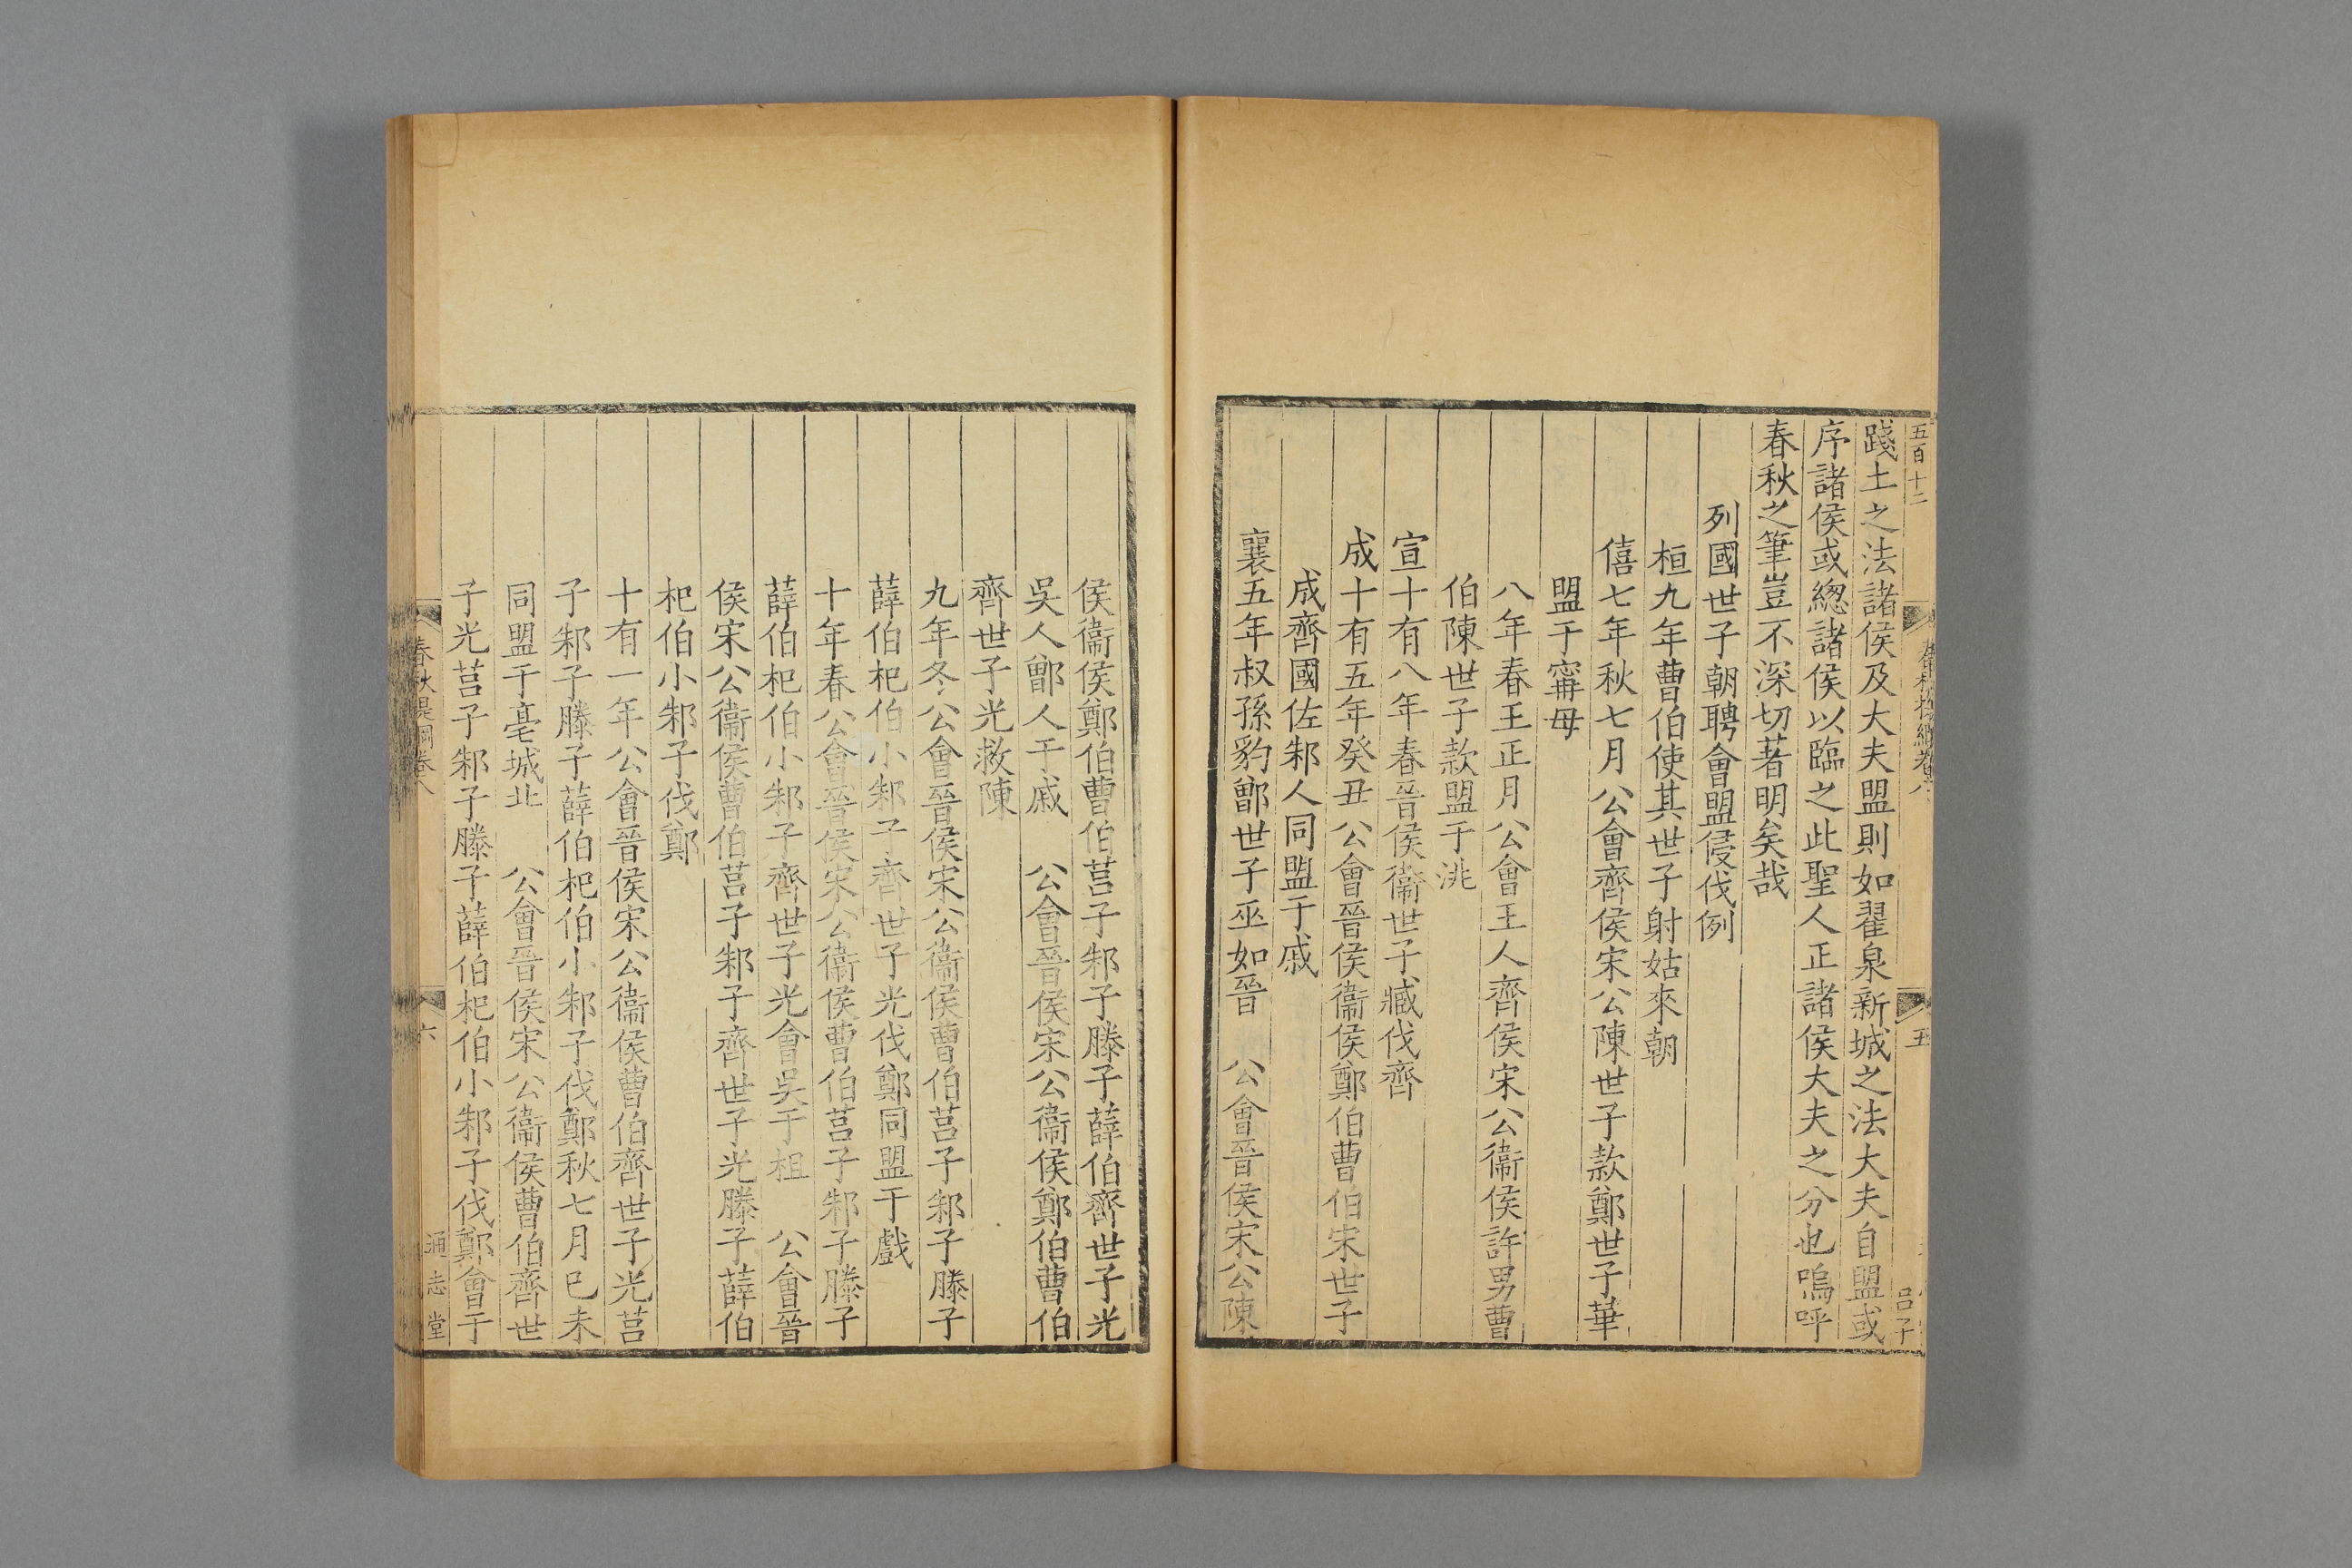 五百十二
春秋提綱卷八
五
吕子
踐土之法諸侯及大夫盟則如翟泉新城之法大夫自盟或
序諸侯或緫諸侯以臨之此聖人正諸侯大夫之分也嗚呼
春秋之筆豈不深切著明矣哉
列國世子朝聘會盟侵伐例
桓九年曹伯使其世子射姑來朝
僖七年秋七月公會齊侯宋公陳世子款鄭世子華
盟于甯毋
八年春王正月公會王人齊侯宋公衞侯許男曹
伯陳世子款盟于洮
宣十有八年春晉侯衞世子臧伐齊
成十有五年癸丑公會晉侯衞侯鄭伯曹伯宋世子
成齊國佐邾人同盟于戚
襄五年叔孫豹鄫世子巫如晉　公會晉侯宋公陳
侯衞侯鄭伯曹伯莒子邾子滕子薛伯齊世子光
吳人鄫人于戚　公會晉侯宋公衞侯鄭伯曹伯
齊世子光救陳
九年冬公會晉侯宋公衞侯曹伯莒子邾子滕子
薛伯杞伯小邾子齊世子光伐鄭同盟于戲
十年春公會晉侯宋公衞侯曹伯莒子邾子滕子
薛伯杞伯小邾子齊世子光會吳于柤　公會晉
侯宋公衞侯曹伯莒子邾子齊世子光滕子薛伯
杞伯小邾子伐鄭
十有一年公會晉侯宋公衞侯曹伯齊世子光莒
子邾子滕子薛伯杞伯小邾子伐鄭秋七月巳未
同盟于亳城北　公會晉侯宋公衞侯曹伯齊世
子光莒子邾子滕子薛伯杞伯小邾子伐鄭會于
春秋提綱卷八
六
通志堂